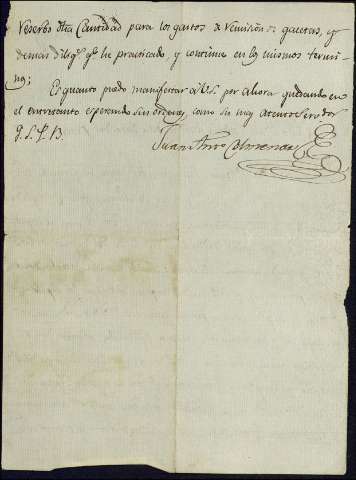 reserbo otra Cantidad para los gastos de remision de gacetas, y
demas dilig.s q.e he practicado, y continuo en los mismos termi-
nos;
Es quanto puedo manifestar á V.S. por ahora quedando en
el entretanto esperando sus ordenes, como su muy atento Servidor
Q. S. M. B.
Juan Anto